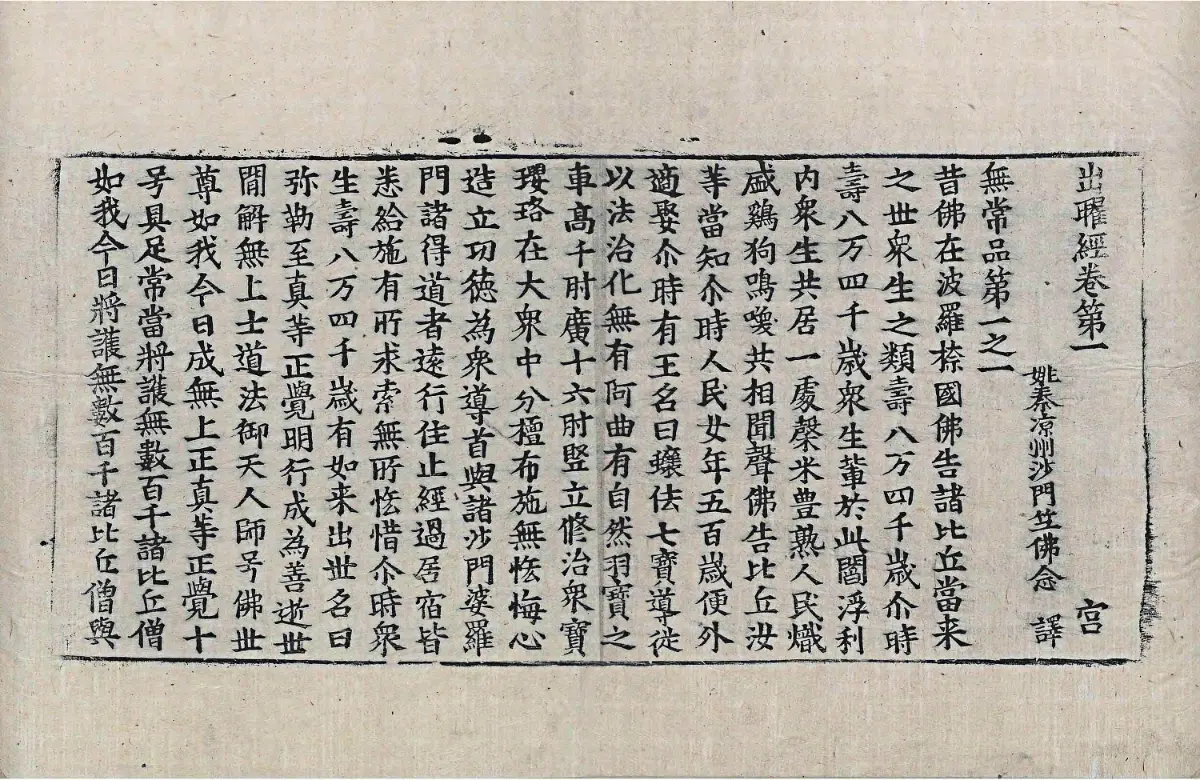 出曜經卷第一　宫
姚秦凉州沙門竺佛念　譯
無常品第一之一
昔佛在波羅㮈國佛告諸比丘當来
之世衆生之類壽八万四千歲尒時
壽八万四千歲衆生軰於此閻浮利
内衆生共居一處槃米豊熟人民熾
盛鷄狗鳴喚共相聞聲佛告比丘汝
等當知尒時人民女年五百歲便外
適娶尒時有王名曰蠰佉七寶導從
以法治化無有阿曲有自然羽寶之
車髙千肘廣十六肘竪立修治衆寶
瓔珞在大衆中分檀布施無恡悔心
造立功徳為衆導首與諸沙門婆羅
門諸得道者逺行住止經過居宿皆
悉給施有所求索無所恡惜尒時衆
生壽八万四千歲有如来出世名曰
弥勒至真等正覺明行成為善逝世
間解無上士道法御天人師号佛世
尊如我今日成無上正真等正覺十
号具足常當將護無數百千諸比丘僧
如我今日將護無數百千諸比丘僧與